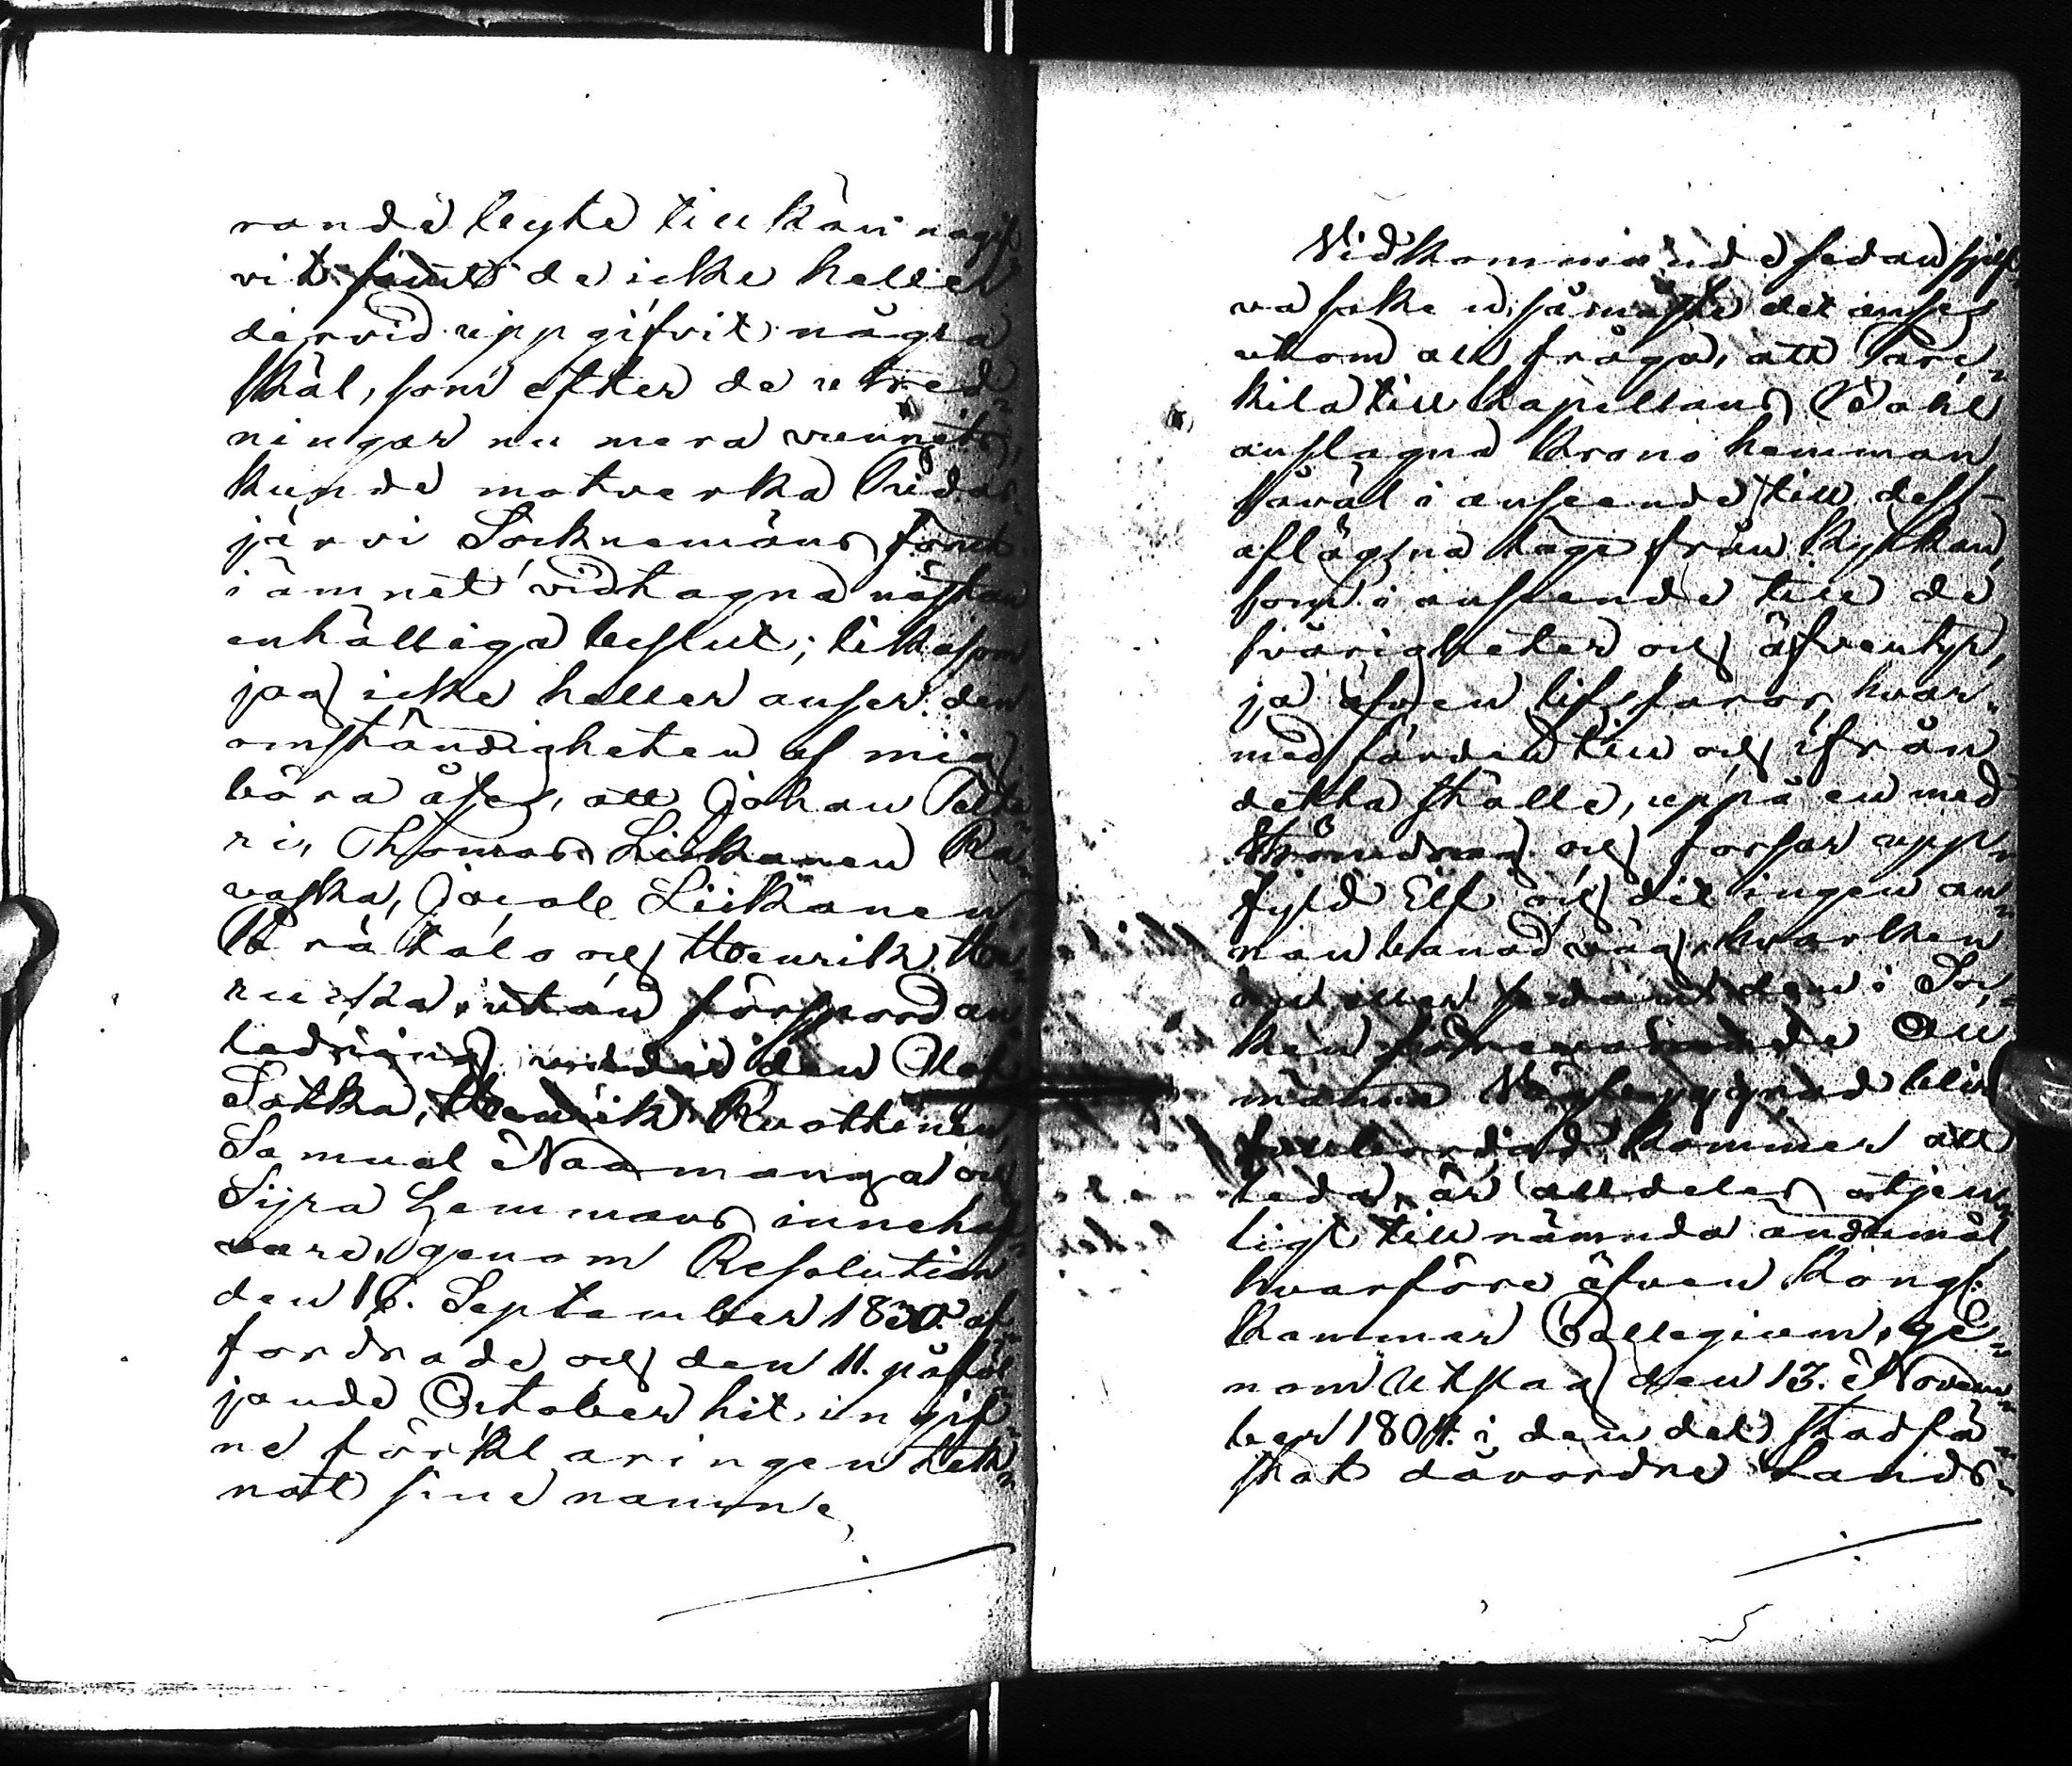 rande leyte tillkänna gif-
vit samt de icke heller
dervid uppgifvit några
skäl, som efter de utred-
ningar nu mera vunnits,
kunde motverka Pudas-
järvi Socknemäns förut
i ämnet vidtagna nästan
enhälliga beslut; likasom
jag icke heller anser den
omständigheten af mig
böra åses, att Johan Pelt-
ri, Thomas Liikanen Ra-
vaska, Jacob Liikanen
och Henrik
utan förspord an-
ledning under den Olof
Sotka, Henrik Ruottinen,
Samuel Naamanga och
Sijra Hemmans inneha-
vare, genom Resolution
den 16. September 1830. af-
fordrade och den 11. påföl-
jande October hit in gif-
ne förklaringen teck-
nat sine namne,
Vidkommande sedan sjelf-
va saken, så måste det anses
utom all fråga, att Tare-
kila till Kapellans Bohl
anslagna Krono hemman,
såväl i anseende till dess
aflägsna läge från Kyrkan,
som i anseende till de
svårigheter och äfventyr,
ja äfven lifsfaror, hvar-
med färden till och ifrån
detta ställe, uppå en med
Strömdrag och forsar upp-
fyld Elf och dit ingen an-
nan banad väg, hvarken
nu eller sedan den i Soc-
ken förevarande All-
männa Vägbyggnad blir
fullbordad, kommer att
leda, är alldeles otjen-
ligt till nämnda ändamål
hvarföre äfven Kongl.
Kammar Collegium, ge-
nom Utslag den 13. Novem-
ber 1804. i den del stadfä-
stat dåvarande Lands-